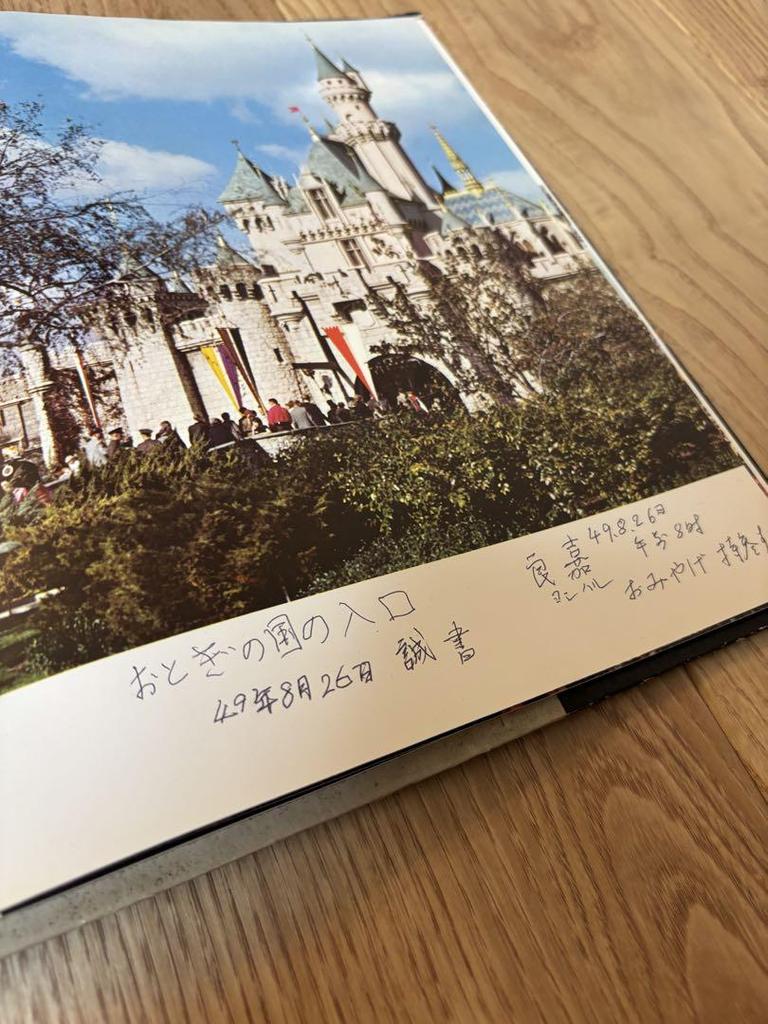 おとぎの国の入口
49年8月26日 誠書
良嘉 49.8.26日
ヨシハル 午前8時
おみやげ